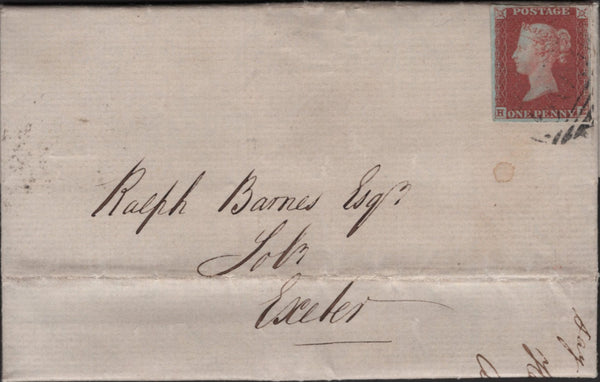 POSTAGE
H
ONE PENNY
Ralph Barnes Esqr
Solr
Exeter